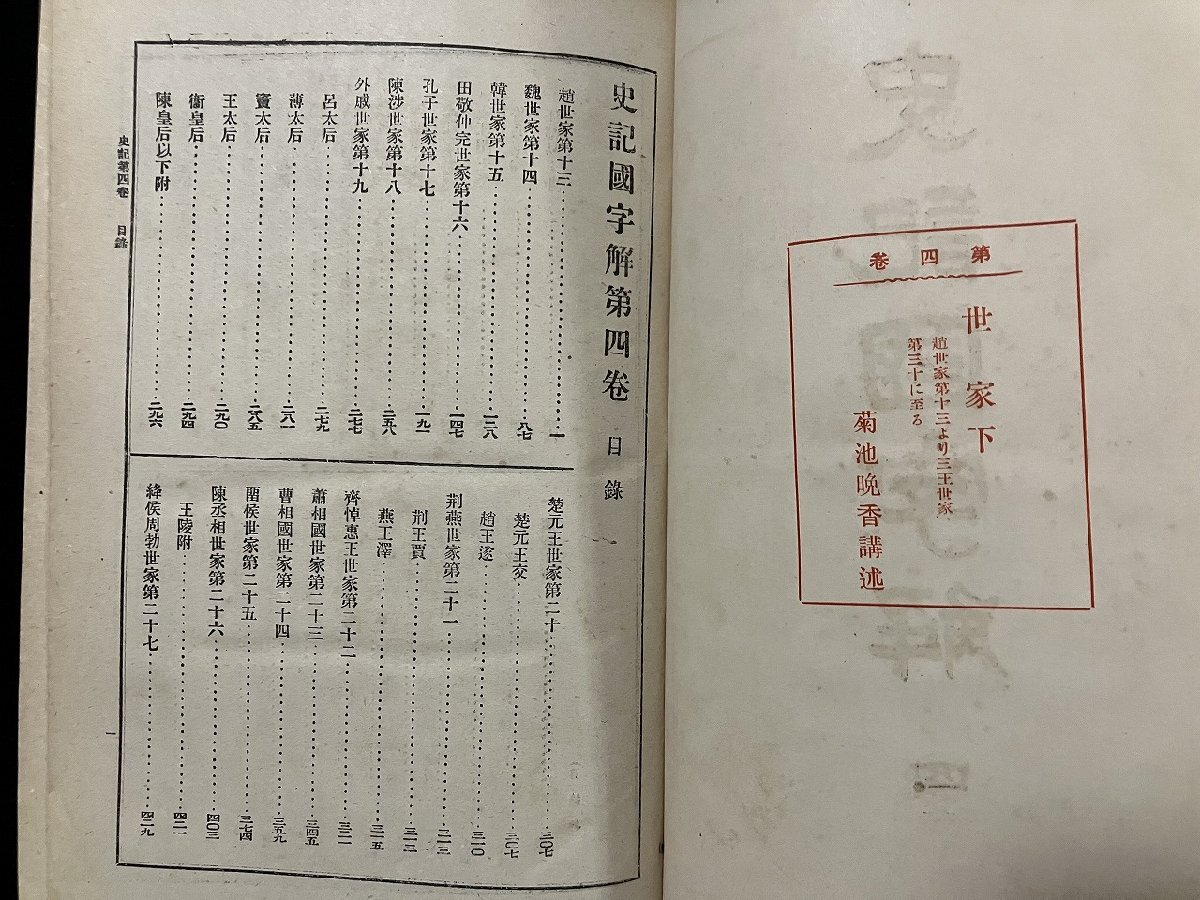 第四卷
世家下
趙世家第十三より三王世家
第三十に至る
菊池晩香講述
史記國字解第四卷 目錄
趙世家第十三………一
魏世家第十四………八七
韓世家第十五………一二八
田敬仲完世家第十六………一四七
孔子世家第十七………一九一
陳涉世家第十八………二五八
外戚世家第十九………二七七
呂太后………二七九
薄太后………二八一
竇太后………二八五
王太后………二九〇
衞皇后………二九四
陳皇后以下附………二九六
楚元王世家第二十………三〇七
楚元王交………三〇七
趙王遂………三一〇
荆燕世家第二十一………三一三
荆王賈………三一三
燕王澤………三一五
齊悼惠王世家第二十二………三二一
蕭相國世家第二十三………三四五
曹相國世家第二十四………三五九
留侯世家第二十五………三七四
陳丞相世家第二十六………四〇三
王陵附………四二一
絳侯周勃世家第二十七………四二九
史記第四卷 目錄
一